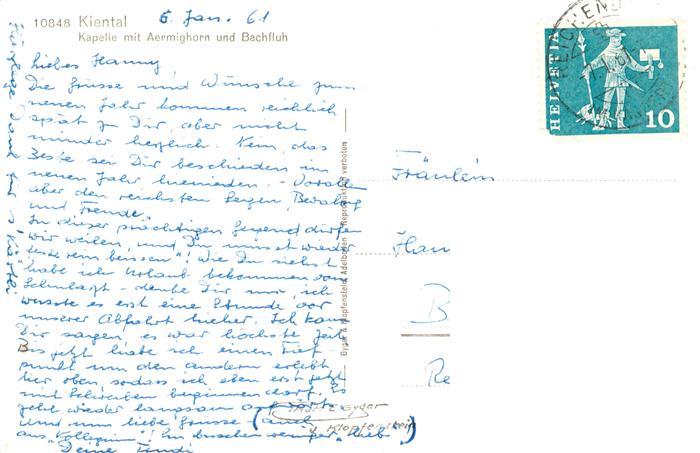 10848 Kiental
Kapelle mit Aermighorn und Bachfluh
6. Jan. 61
Liebes Hanny
Die Grüsse und Wünsche zum
neuen Jahr kommen reichlich
spät zu Dir, aber nicht
minder herzlich. Nein, das
Beste sei Dir beschieden im
neuen Jahr hienieden. - Vorallem
aber den reichsten Segen, Bewahrg
und Freude.
In dieser prächtigen Gegend dürfen
wir weilen, und Du musst wieder
beissen"! Wie Du siehst,
habe ich Urlaub bekommen vom
Schularzt - denke Dir nur, ich
wusste es erst eine Stunde vor
unserer Abfahrt hieher. Ich kann
Dir sagen, es war höchste Zeit
Bis jetzt habe ich einen Tief-
punkt um den andern erlebt
hier oben, sodass ich eben erst jetzt
mit Schreiben beginnen darf. Es
geht wieder langsam
Und nun liebe Grüsse (auch
ans "Kollegium"! Ein bisschen weniger "lieb")
Deine Trudi
Gyger & Klopfenstein, Adelboden - Reproduktion verboten
Gyger
Klopfenstein
HELVETIA
10
Fräulein
Han
B
Re